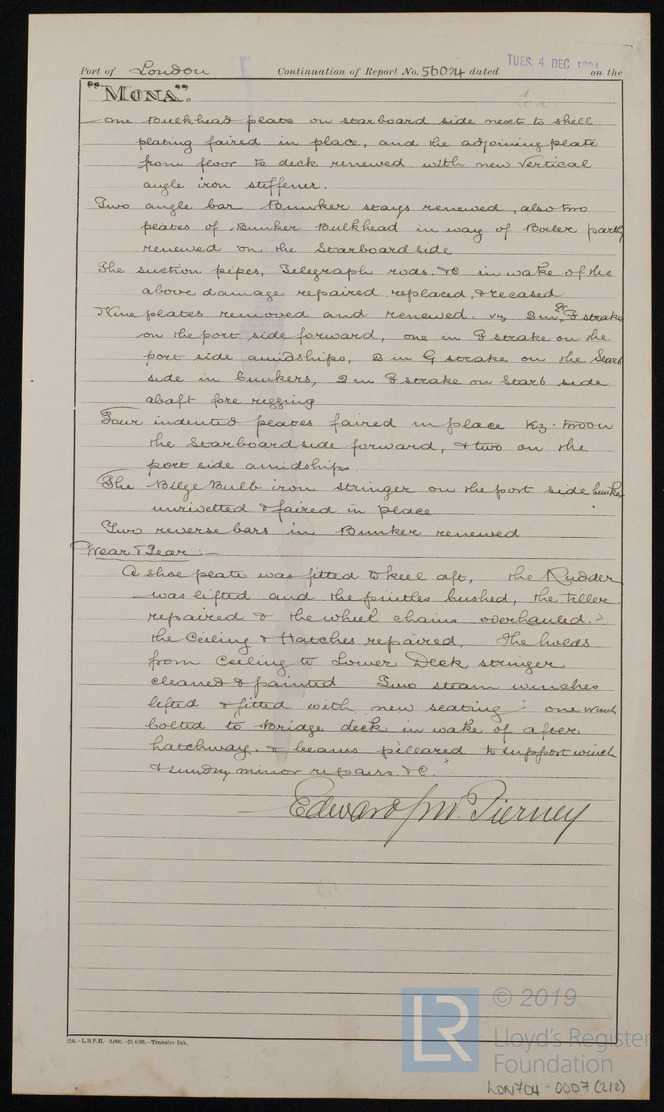 Port of London Continuation of Report No. 56024 dated TUES. 4 DEC 1894 on the
"MONA".
one Bulkhead plate on starboard side next to shell
plating faired in place, and the adjoining plate
from floor to deck renewed with new vertical
angle iron stiffener.
Two angle bar Bunker stays renewed, also two
plates of Bunker Bulkhead in way of Boiler partly
renewed on the Starboard side
The suction pipes, Telegraph rods &c in wake of the
above damage repaired replaced, & recased
Nine plates removed and renewed. viz 2 in F strake
on the port side forward, one in F strake on the
port side amidships, 2 in G strake on the Starb
side in bunkers, 2 in F strake on Starb side
abaft fore rigging
Four indented plates faired in place viz. two on
the Starboard side forward, & two on the
port side amidships
The Bilge Bulb iron stringer on the port side bunker
unrivetted & faired in place
Two reverse bars in Bunker renewed
Wear & Tear :-
A shoe plate was fitted to keel aft, the Rudder
was lifted and the pintles bushed, the tiller
repaired & the wheel chains overhauled.
the Ceiling & Hatches repaired. The holds
from ceiling to Lower Deck stringer
cleaned & painted Two steam winches
lifted & fitted with new seating: one winch
bolted to Bridge deck in wake of after
hatchway. & beams pillared to support winch
& sundry minor repairs &c.
Edward J W. Tierney
210.-L.R.P.H.-3,000.- -Transfer Ink.
LR © 2019
Lloyd's Register
Foundation
LON704-0007 (2/2)